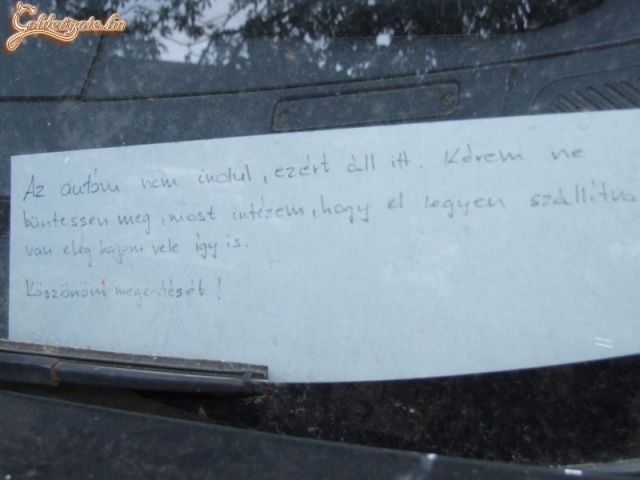 Goldengate.hu
Az autóm nem indul, ezért áll itt. Kérem ne
büntessen meg, most intézem, hogy el legyen szállítva
van elég bajom vele így is.
Köszönöm megértését!